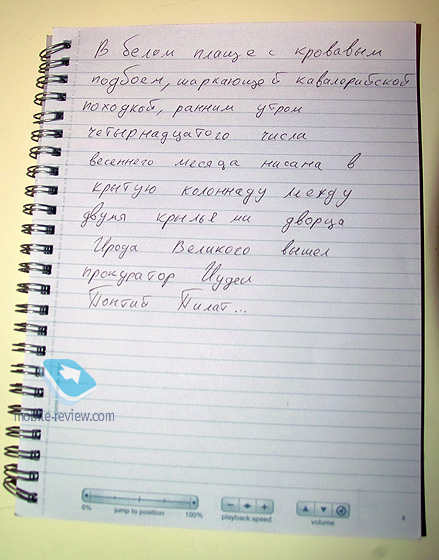 В белом плаще с кровавым
подбоем, шаркающей кавалерийской
походкой, ранним утром
четырнадцатого числа
весеннего месяца нисана в
крытую колоннаду между
двумя крыльями дворца
Ирода Великого вышел
прокуратор Иудеи
Понтий Пилат...
mobile-review.com
0% jump to position 100%
playback speed
volume